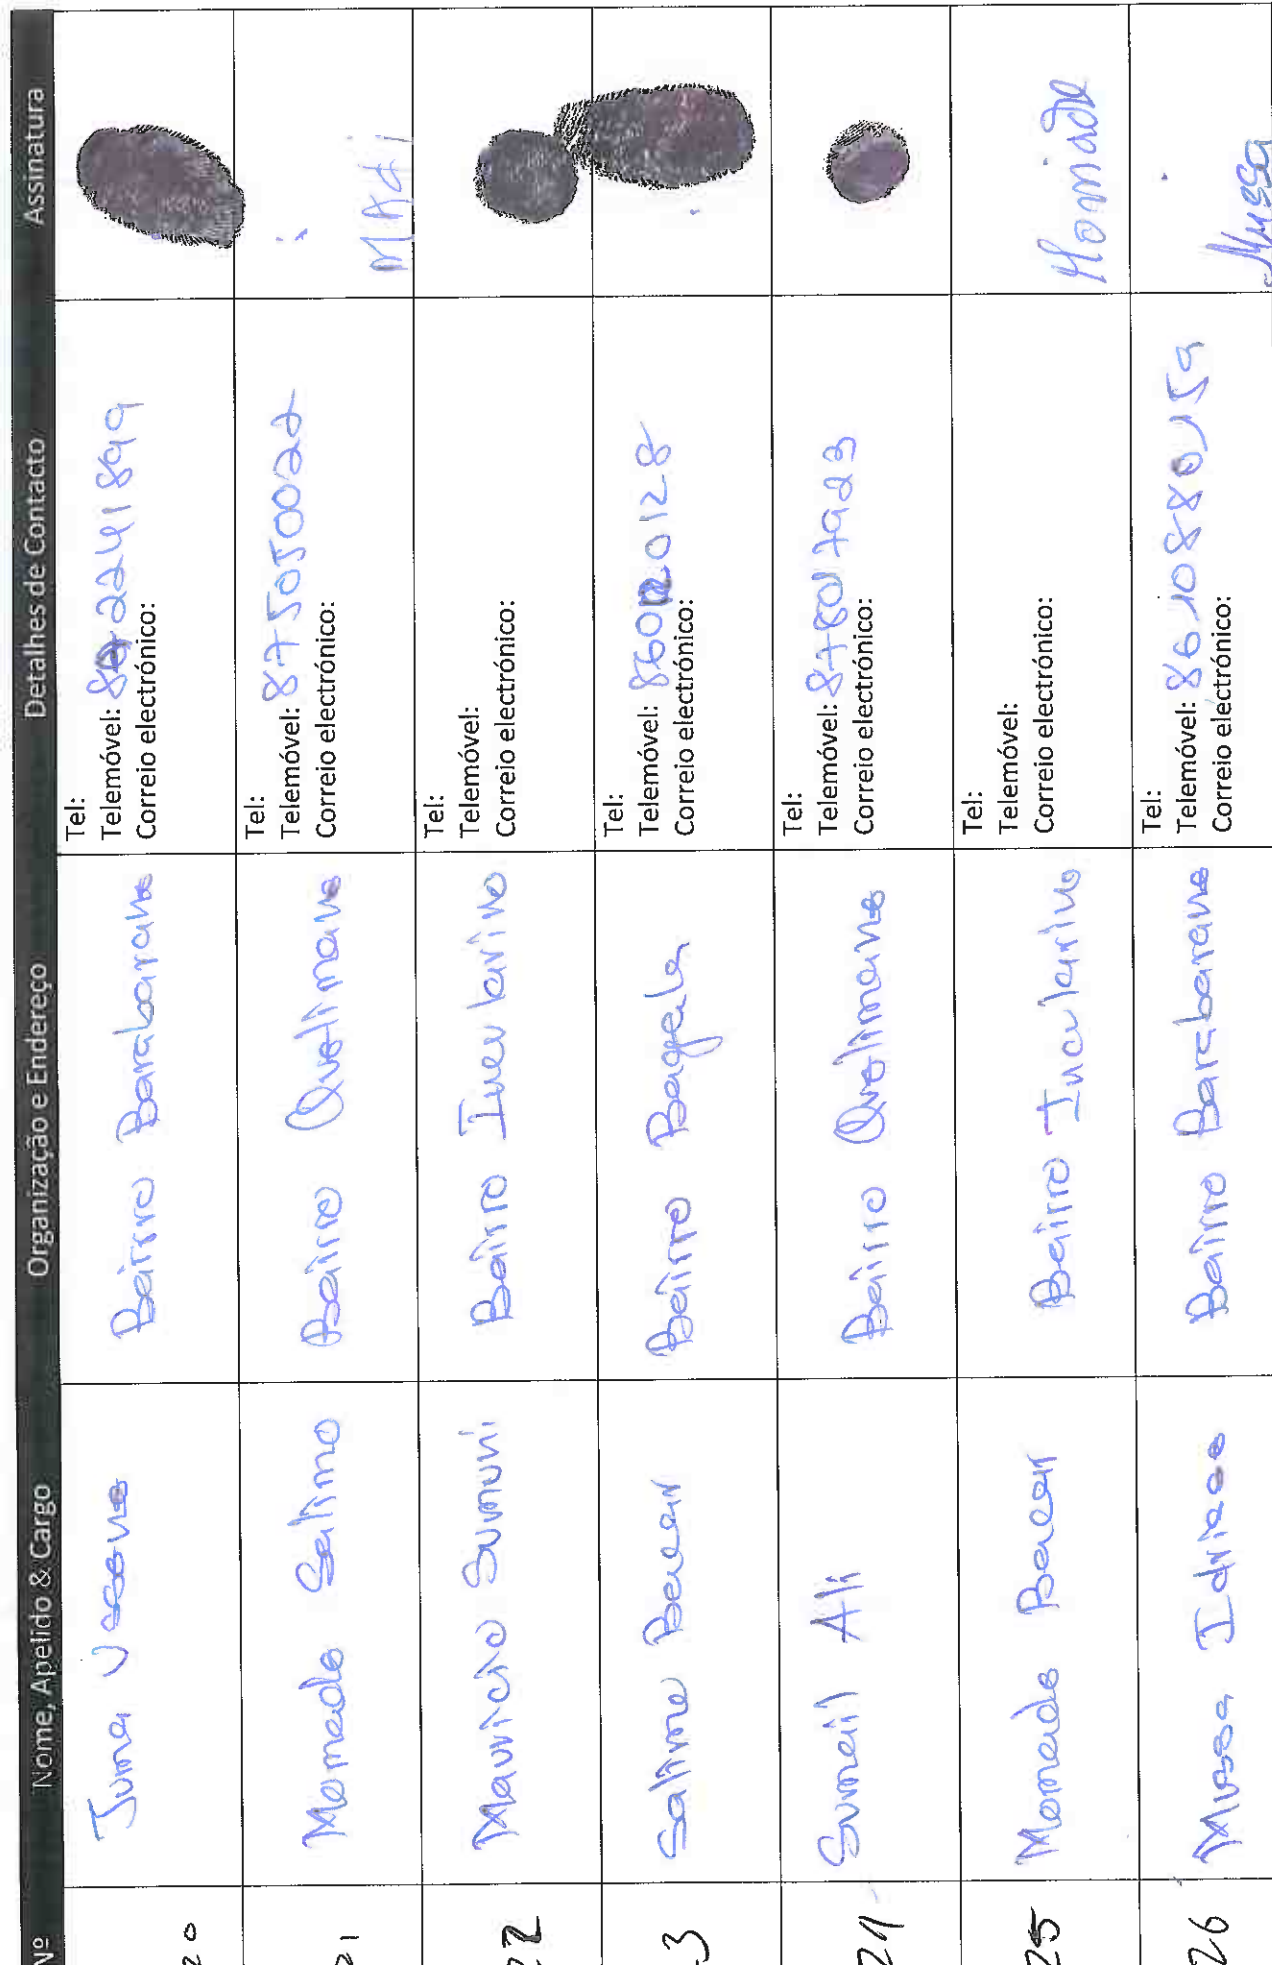 Nº Nome, Apelido & Cargo Organização e Endereço Detalhes de Contacto Assinatura
20 Juma Ussene Bairro Barabarane
Tel:
Telemóvel: 2241899
Correio electrónico:
21 Momade Salimo Bairro Quelimane
Tel:
Telemóvel: 875050022
Correio electrónico:
MAdi
22 Mauricio Sumuni Bairro
Tel:
Telemóvel:
Correio electrónico:
3 Salimo Bacar Bairro Bagala
Tel:
Telemóvel:
Correio electrónico:
24 Sumail Ali Bairro Quelimane
Tel:
Telemóvel: 878017923
Correio electrónico:
25 Momade Bacar Bairro
Tel:
Telemóvel:
Correio electrónico:
26 Mussa Idrisse Bairro Barabarane
Tel:
Telemóvel: 861088015
Correio electrónico:
Mussa